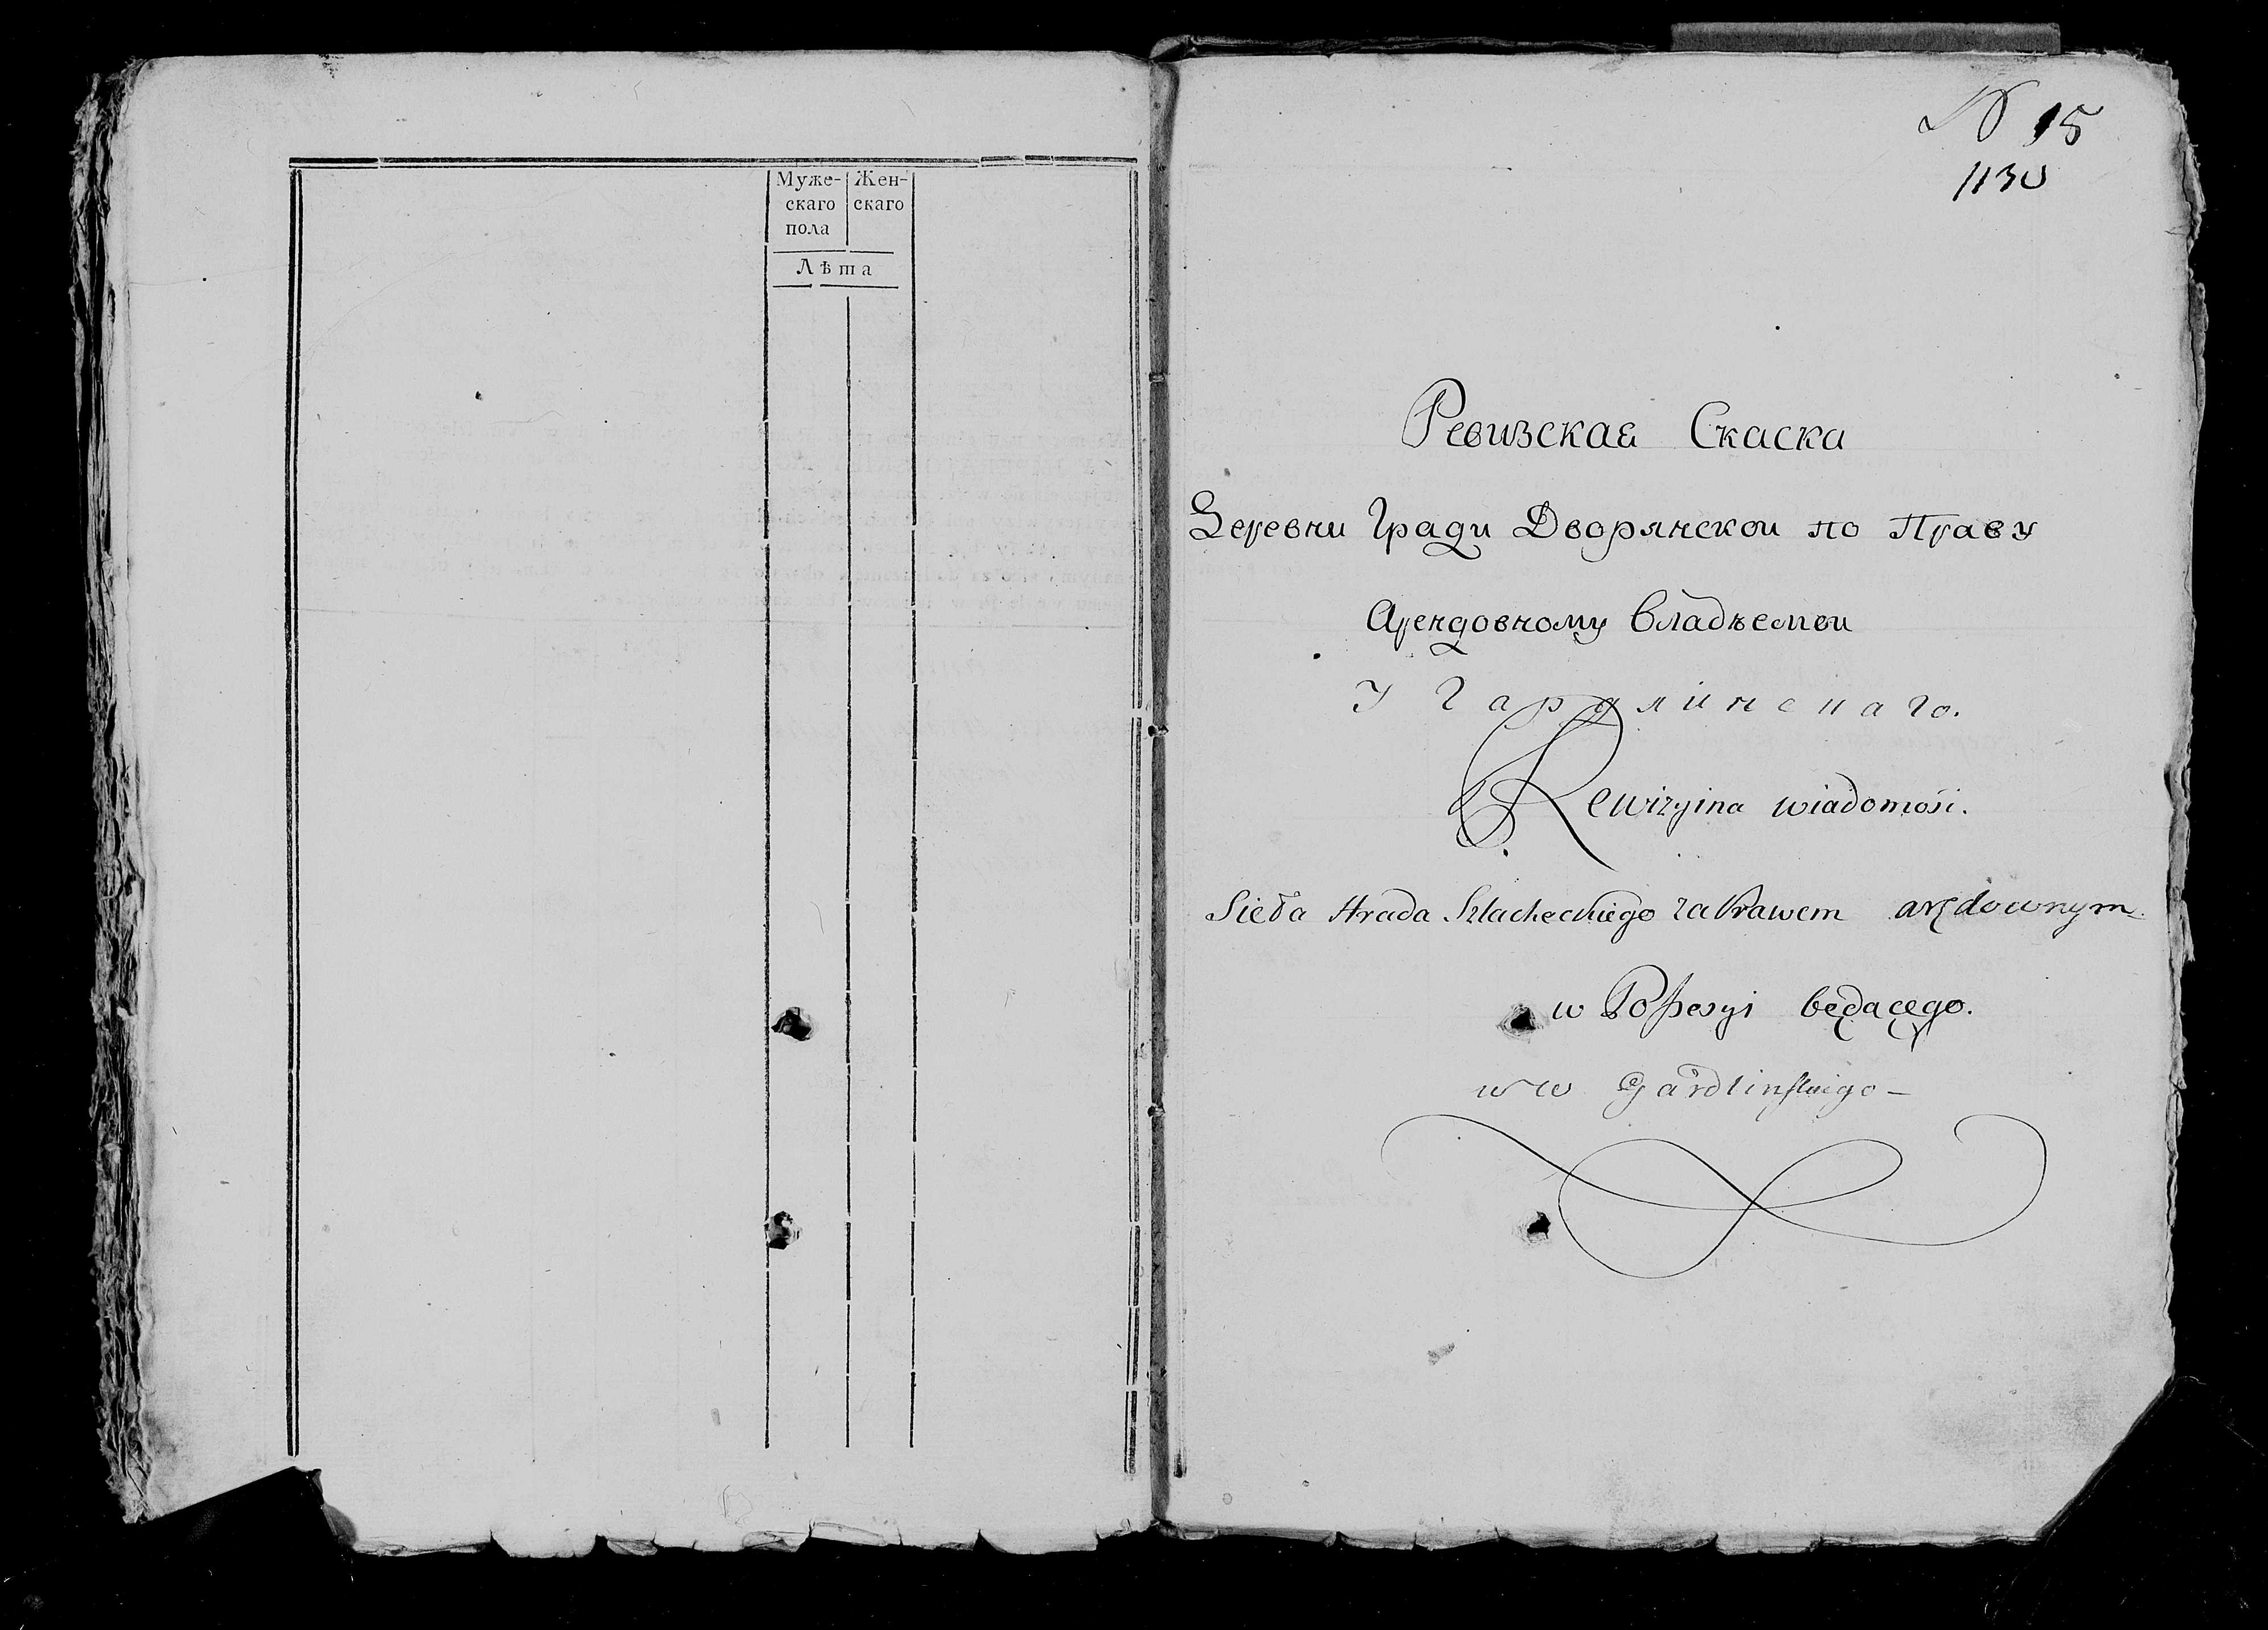 Муже- Жен-
скаго скаго
пола
Лѣта
N 15
1130
Ревизская Скаска
Деревни Гради Дворянской по Праву
Арендовному Владѣемей
У Гардлинскаго.
Rewizyina wiadomośi.
Sieła Hrada Szlacheckiego za Prawem arędownym
w Possesyi będącego.
w w Gardlinskiego —